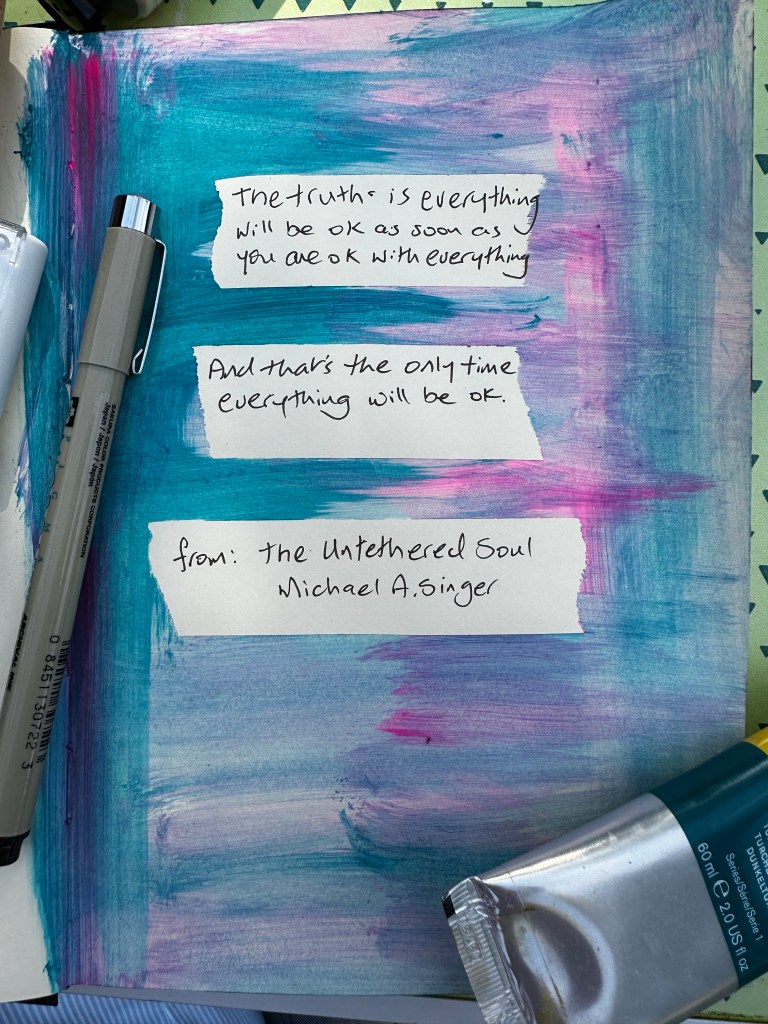 The truth is everything
will be ok as soon as
you are ok with everything
And that's the only time
everything will be ok.
from: The Untethered Soul
Michael A. Singer
SAKURA COLOR PRODUCTS CORPORATION
Japan / Japon / Japan
PIGMA
ARCHIVAL INK
0 84511 30722 3
Series/Série/Serie 1
60 ml e 2.0 US fl oz